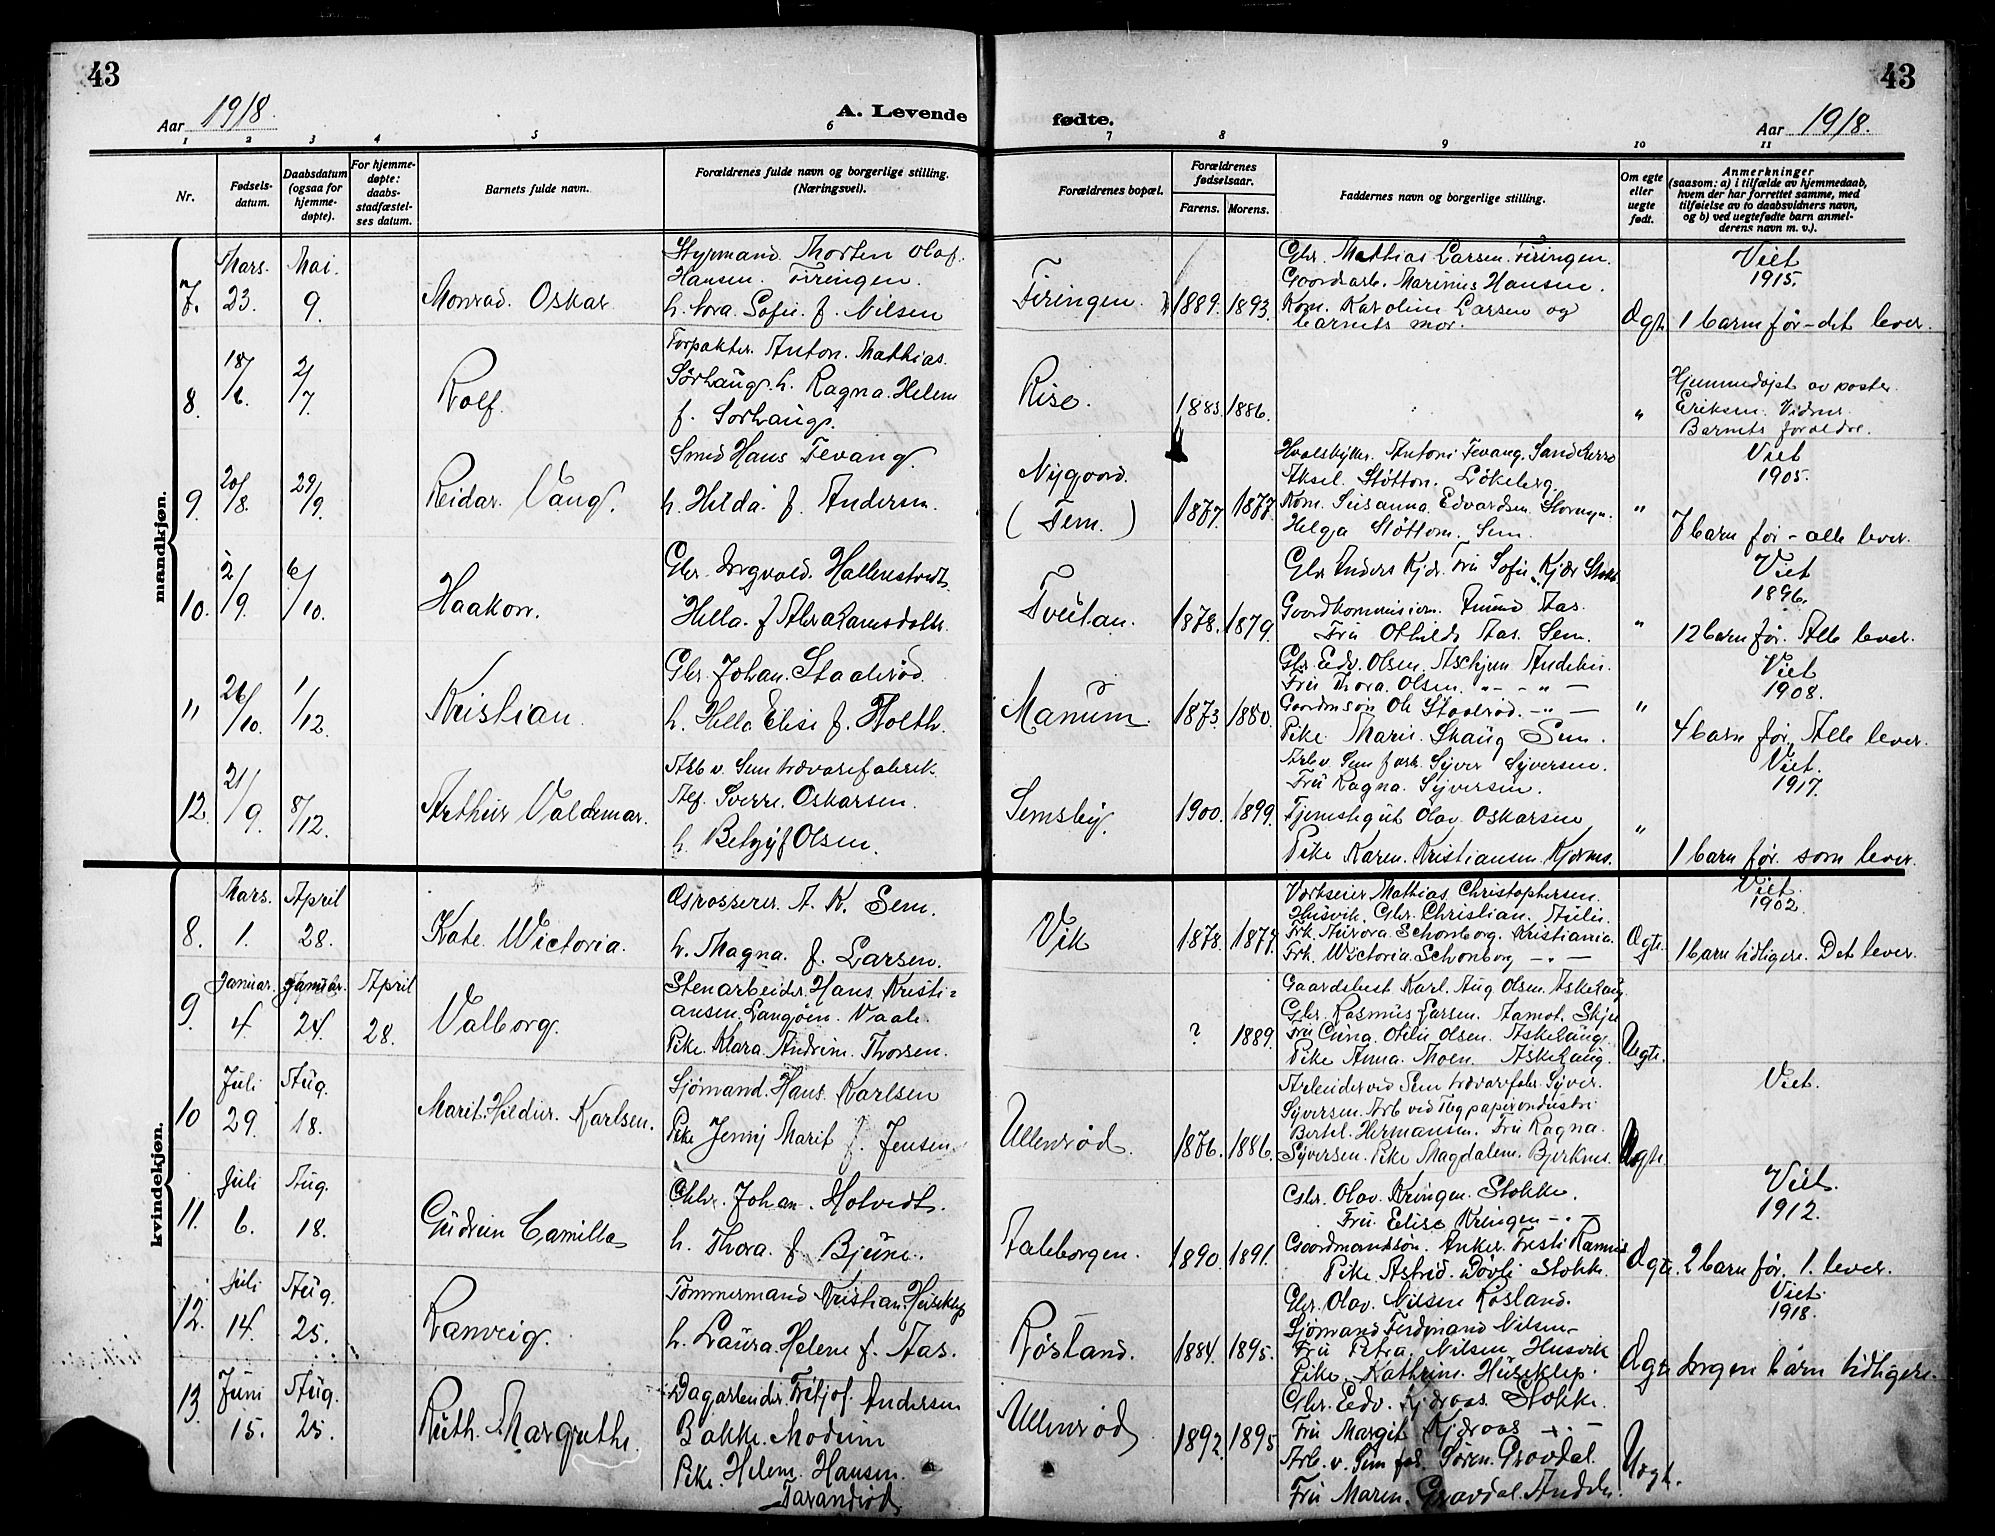 43
43
Aar 1918.
A. Levende
fødte.
Aar 1918.
1 2 3 4 5 6 7 8 9 10 11
Nr.
Fødsels-
datum.
Daabsdatum
(ogsaa for
hjemme-
døpte).
For hjemme-
døpte:
daabs-
stadfæstel-
ses datum.
Barnets fulde navn.
Forældrenes fulde navn og borgerlige stilling.
(Næringsvei).
Forældrenes bopæl.
Forældrenes
fødselsaar.
Farens. Morens.
Faddernes navn og borgerlige stilling.
Om egte
eller
uegte
født.
Anmerkninger
(saasom: a) i tilfælde av hjemmedaab,
hvem der har forrettet samme, med
tilføielse av to daabsvidners navn,
og b) ved uegtefødte barn anmel-
derens navn m. v.).
mandkjøn.
7.
Mars.
23.
Mai.
9.
Monrad. Oskar
Styrmand. Morten Olaf.
Hansen. Firingen.
h. Nora. Sofie. f. Nilsen
Firingen.
1889. 1893.
Gbr. Mathias Larsen. Firingen.
Gaardsarb. Marinius Hansen.
Kon. Karoline Larsen og
barnets mor.
Ægte
Viet
1915.
1 barn før - det lever.
8.
18/6
2/7
Rolf.
Forpakter. Anton. Mathias.
Sørhaug. h. Ragna. Helene
f. Sørhaug.
Rise.
1883. 1886.
"
Hjemmedøpt av pastor
Eriksen. Vidner.
Barnets forældre.
9.
20/8.
29/9.
Reidar. Vang.
Smed Hans Fevang.
h. Hilda f. Andersen.
Nygaard.
(Sem.)
1877. 1877.
Hvalskytter. Anton Fevang. Sandeherre
Aksel. Støttom. Løkeberg.
Kon. Susanna. Edvardsen
Helga Støttom. Sem.
"
Viet
1905.
7 barn før - alle lever.
10.
2/9.
6/10.
Haakon.
Gbr. Ingvald. Hallenstvedt
Tveitan.
1878. 1879.
Gbr Anders Kjær. Fru Sofie Kjær
Gaardkommision. Amund Aas.
Fru Othilde Aas. Sem.
"
Viet
1896.
12 barn før. Alle lever.
11
26/10.
1/12.
Kristian.
Gbr. Johan. Staalerød.
h. Hella Elise f. Holth.
Manum.
1873. 1880.
Gbr. Edv. Olsen. Askjem Andebu.
Fru Thora. Olsen. " - "
Gaardmsøn Ole Staalerød. - " -
Pike. Marie. Skaug Sem.
"
Viet
1908.
4 barn før, Alle lever.
12.
21/9.
8/12.
Arthur Valdemar.
Arb v. Sem trævarefabrik.
Alf. Sverre. Oskarsen.
h. Betzy f Olsen.
Semsby.
1900. 1899.
Arb v. Sem fabr. Syver Syversen.
Fru Ragna. Syversen.
Tjenestegut Olav. Oskarsen
Pike Karen. Kristiansen. Kjærnes.
"
Viet.
1917.
1 barn før som lever.
kvindekjøn.
8.
Mars.
1.
April
28.
Kate. Wictoria.
Gsrosserer. A. K. Sem.
h. Magna. f. Larsen.
Vik
1878. 1877.
Værkseier Mathias Christophersen.
Husvik. Gbr. Christian. Aulie.
Frk. Aurora. Schonborg. Kristiania.
Frk. Wictoria. Schonborg - " -
Ægte.
Viet.
1902.
1 barn tidligere. Det lever.
9.
Januar.
4.
Januar.
24.
April
28.
Valborg.
Stenarbeider. Hans Kristi=
ansen. Langøen. Vaale.
Pike. Klara. Andrine. Thorsen.
? 1889.
Gaardsbest. Karl. Aug Olsen. Askehaug.
Gbr. Rasmus Larsen. Aamot. Skjee
Fru Otilie Olsen. Askehaug.
Pike Anna. Moen. Askehaug.
Uegte.
10
Juli
29.
Aug.
18.
Marit. Hildur. Karlsen.
Sjømand. Hans. Karlsen
Pike Jenny Marit f. Jensen
Ullenrød.
1876. 1886.
Arbeider ved Sem trævarefabr. Syver.
Syversen. Arb ved Tbg papirindustri
Bertel. Hermansen. Fru Ragna.
Syversen. Pike Magdalene. Bjerknes.
Uegte.
Viet.
11.
Juli
6.
Aug.
18.
Gudrun Camilla
Gbr. Johan. Hotvedt.
h. Thora. f. Bjune.
Taleborgen.
1890. 1891.
Gbr. Olav. Kringen. Stokke.
Fru. Elise Kringen - " -
Gaardmandsøn. Anker.
Pike Astrid. Døvle Stokke.
Ægte.
Viet.
1912.
2 barn før, 1. lever.
12.
Juli
14.
Aug.
25.
Ranveig.
Tømmermand Kristian. Huseklep
h. Laura. Helene f. Aas.
Røsland.
1884. 1895.
Gbr. Olav. Nilsen Røsland.
Sjømand Ferdinand Nilsen-
Fru Petra. Nilsen Husvik
Pike. Kathrine. Huseklep.
Ægte
Viet.
1918.
Ingen barn tidligere.
13.
Juni
15.
Aug.
25.
Ruth. Margrethe.
Dagarbeider. Fritjof. Andersen
Bakke. Modum
Pike. Helene. Hansen.
Tarandrød
Ullenrød
1892. 1895
Gbr. Edv. Kjæraas. Stokke.
Fru Margit Kjæraas - " -
Arb. v. Sem fab. Søren. Gravdal.
Fru Maren. Gravdal. Andebu.
Uegt.